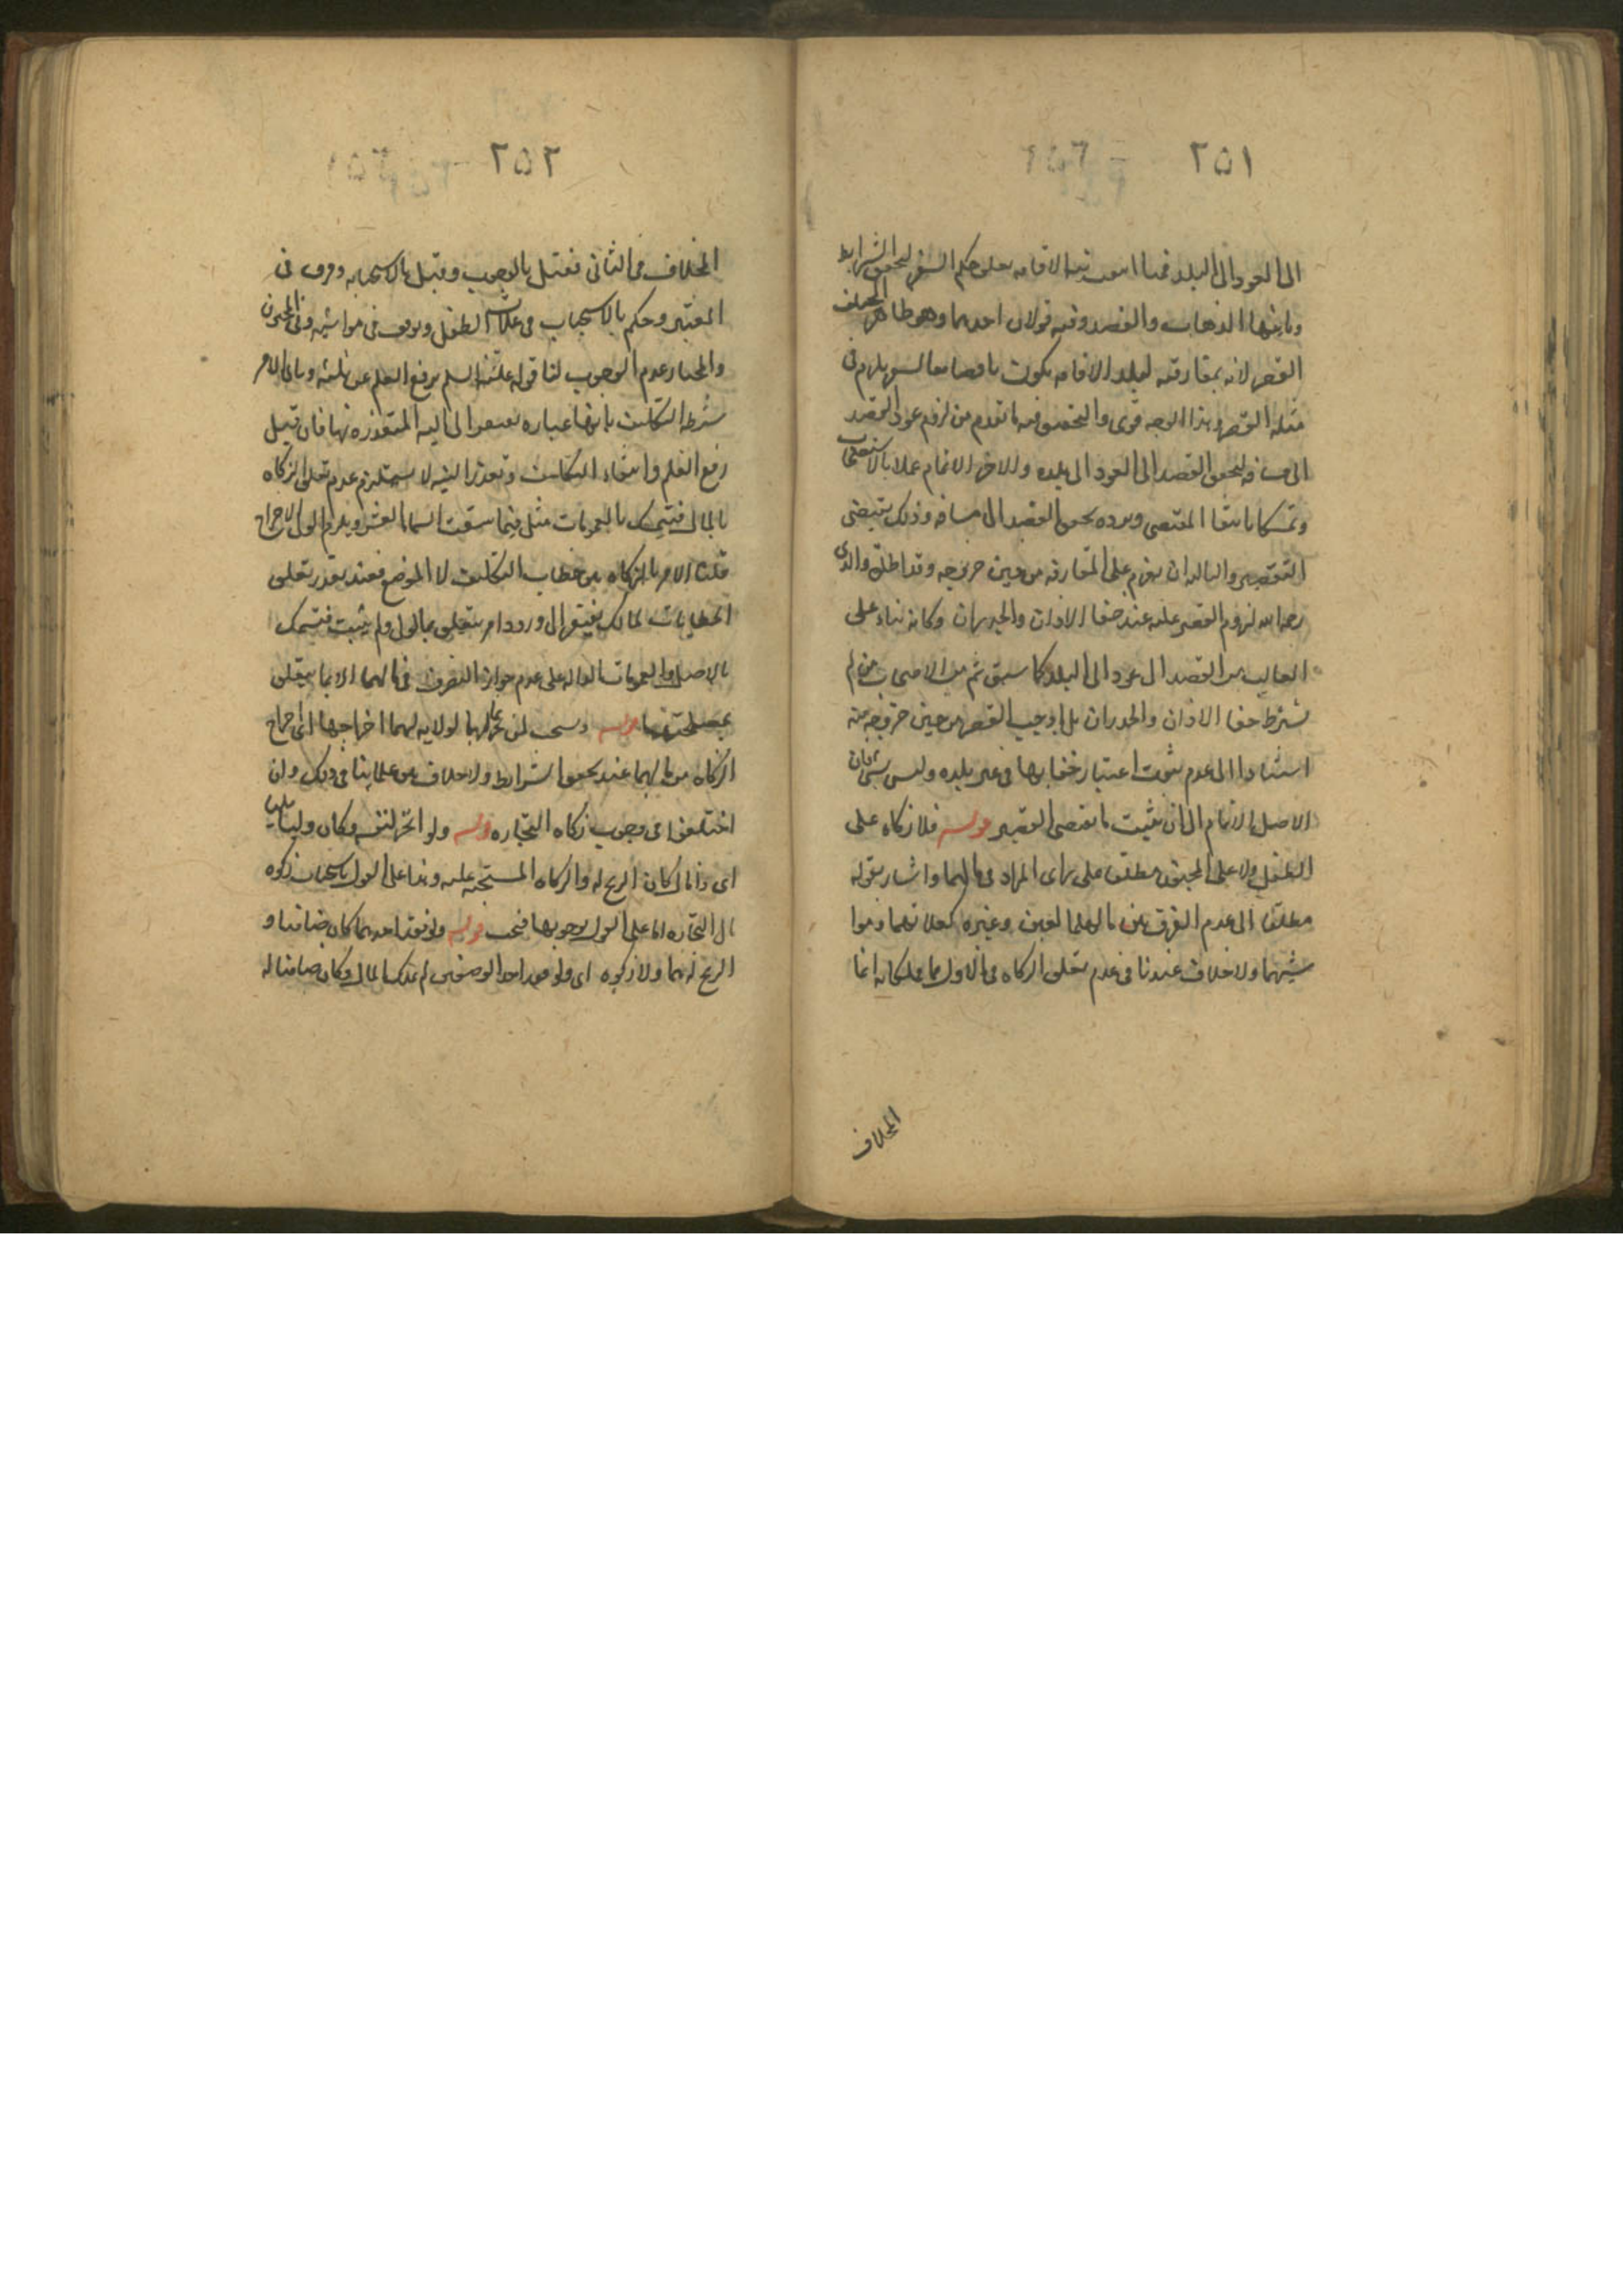 ٢٥١
الى العود الى البلد فمما انتفت نية الاقامه تعلق حكم السفر لتحقق الشرايط
وثانيها الذهاب والقصد وفيه قولان احدهما وهو ظاهر المصنف
القصر لانه بمفارقته لبلد الاقامه يكون السفر يلزم في
مثله القصر وهذا الوجه قوى والتحقيق فيه ما تقدم من لزوم عود القصد
الى مسافه لتحقق القصد الى العود الى بلده والاخر الاتمام عملا بالاستصحاب
وتمسكا بانتفا المقتضى ويرده تحقق القصد الى مسافه وذلك يقتضى
التقصير والثالث ان يعزم على المفارقه من حين خروجه وقد اطلق والدى
رحمه الله لزوم القصر عليه عند خفا الاذان والجدران وكانه بناء على
الغالب من القصد الى عود الى البلد كما سبق ثم من الاصحاب من لم
يشترط خفا الاذان والجدران بل اوجب القصر من حين خروجه منه
استنادا الى عدم ثبوت اعتبار خفايها فى غير بلده وليس بشى فان
الاصل الاتمام الى ان يثبت ما يقتضى القصر قوله فلا زكاه على
الطفل ولا على المجنون مطلقا على راى المراد فى مالهما واشار بقوله
مطلقا الى عدم الفرق بين مالهما العين وغيره كغلاتهما ومواشيهما
ولا خلاف عندنا فى عدم تعلق الزكاه فى الاول مما يملكانه انما
الخلاف
٢٥٢
الخلاف فى الثانى فقيل بالوجوب وقيل بالاستحباب وفرق فى
المعتبر وحكم بالاستحباب فى غلات الطفل وتوقف فى مواشيه وفى المجنون
والمختار عدم الوجوب لنا قوله عليه السلم رفع القلم عن ثلثه وبان الامر
شرطه التكليف بانها عباره تفتقر الى النيه المتعذره منها فان قيل
رفع القلم وانتفاء التكليف وتعذر النيه لا يستلزم عدم تعلق الزكاه
بالمال فتمسك بالعمومات مثل فيما سقت السما العشر ويلزم الولى الاخراج
قلنا الامر بالزكاه من خطاب التكليف لا الوضع فعند تعذر تعلق
الخطاب بالمالك يفتقر الى ورود امر يتعلق بالولى ولم يثبت فتمسك
بالاصل والعمومات الداله على عدم جواز التصرف فى مالهما الا بما يتعلق
بمصلحتهما قوله ويستحب لمن اتجر لهما بالولايه لهما اخراجها اى اخراج
الزكاه من مالهما عند تحقق الشرايط ولا خلاف بين علماينا فى ذلك وان
اختلفوا فى وجوب زكاه التجاره قوله ولو اتجر لنفسه وكان وليا مليا
اى ذا مال كان الربح له والزكاه المستحبه عليه وهذا على القول باستحباب زكوه
مال التجاره اما على القول بوجوبها فتجب قوله ولو فقد احدهما كان ضامنا و
الربح لهما ولا زكوه اى ولو فقد احد الوصفين لم يملك المال وكان ضامنا له